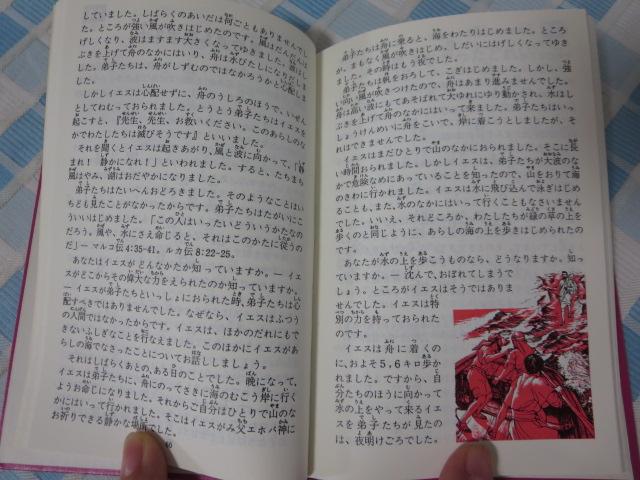 していました。しばらくのあいだは何ごともありませんでし
た。ところが強い風が吹きはじめたのです。風はだんだんは
げしくなり、波はますます大きくなってゆきました。波はし
ぶきを上げて舟のなかにはいり、舟は水びたしになりだしま
した。弟子たちは、舟がしずむのではなかろうかと心配しま
した。
しかしイエスは心配せずに、舟のうしろのほうで、いぜん
としてねむっておられました。とうとう弟子たちはイエスを
起こすと、『先生、先生、お救いください。このあらしのな
かでわたしたちは滅びそうです』といいました。
それを聞くとイエスは起きあがり、風と波に向かって、「静
まれ! 静かになれ!」といわれました。すると、たちまち
風はやみ、湖はおだやかになりました。
弟子たちはたいへんおどろきました。そのようなことはい
ちども見たことがなかったからです。弟子たちはたがいにこ
ういいはじめました。「この人はいったいどういうかたなの
だろう。風や、水にさえ命じると、それはこのかたに従うの
だ」― マルコ伝 4:35-41。ルカ伝 8:22-25。
あなたはイエスが どんなかたか知っていますか。― イエ
スがどこからその偉大な力をえられたのか知っていますか。
― イエスが弟子たちといっしょにおられた時、弟子たちは心
配すべきではありませんでした。なぜなら、イエスはふつう
の人間ではなかったからです。イエスは、ほかのだれにもで
きないふしぎなことを行なえました。このほかにイエスがあ
らしの海でなさったことについてお話ししましょう。
それはしばらくあとの、ある日のことでした。晩になって、
イエスは弟子たちに、舟にのってさきに海のむこう岸に行く
ようお命じになりました。それからご自分はひとりで山のな
かにはいって行かれました。そこはイエスがみ父エホバ神に
お祈りできる静かな場所でした。
60
弟子たちは舟に乗ると、海をわたりはじめました。ところ
が、まもなく風が吹きはじめ、しだいにはげしくなってゆき
ました。その時はもう夜でした。
弟子たちは帆をおろして、こぎはじめました。しかし、強
い向い風が吹きつけたので、舟はあまり進みませんでした。
舟は高い波にもてあそばれて大ゆれにゆり動かされ、水はし
ぶきを上げて舟のなかにはいって来ました。弟子たちはいっ
しょうけんめいに舟をこいで、岸に着こうとしましたが、そ
れはできませんでした。
イエスはまだひとりで山のなかにおられました。そこに長
い時間おられました。しかしイエスは、弟子たちが大波のな
かで危険なめにあっていることを知ったので、山をおりて海
のきわに行かれました。イエスは水に飛び込んで泳ぎはじめ
ることも、また、水のなかにはいって行くこともなさいませ
んでした。いいえ、それどころか、わたしたちが緑の草の上を
歩くのと同じように、あらしの海の上を歩きはじめられたの
です。
あなたが水の上を歩こうものなら、どうなりますか。知っ
ていますか。― 沈んで、おぼれてしまうで
しょう。ところがイエスはそうではありま
せんでした。イエスは特
別の力を持っておられた
のです。
イエスは舟に着くの
に、およそ5,6キロ歩か
れました。ですから、自
分たちのほうに向かって
水の上をやって来るイエ
スを弟子たちが見たの
は、夜明けごろでした。